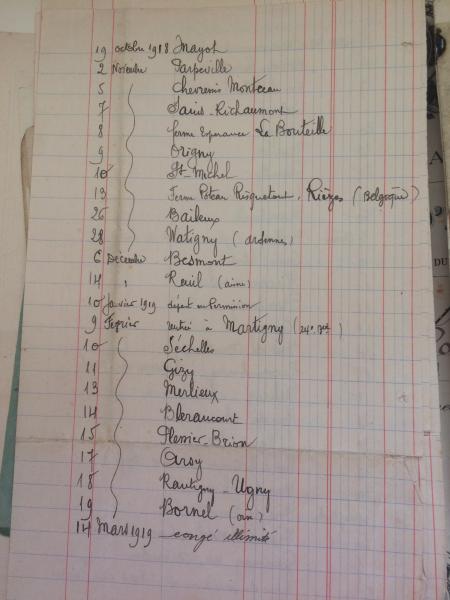 19 octobre 1918 Mayot
2 Novembre Parpeville
5 Chevresis Monceau
7 Sains-Richaumont
8 ferme Esperance La Bouteille
9 Origny
10 St-Michel
13 Ferme Poteau Risquetout, Rièzes (Belgique)
26 Baileux
28 Watigny (ardennes)
6 Décembre Besmont
14 " (aisne)
10 Janvier 1919 départ en Permission
9 Fevrier rentré à Martigny
10 Séchelles
11 Gizy
13 Merlieux
14 Blérancourt
15 Plessier-Brion
17 Arsy
18 Rantigny-Ugny
19 Bornel
14 Mars 1919 congé illimité